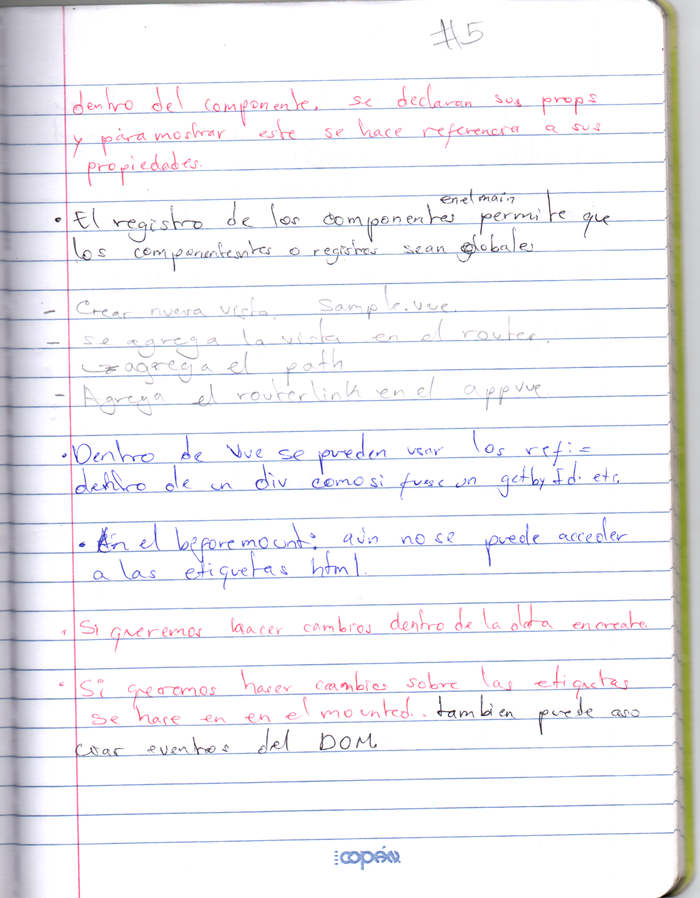 #5
dentro del componente, se declaran sus props
y para mostrar este se hace referencia a sus
propiedades.
en el main
• El registro de los componentes permite que
los componentestes o registros sean globales
- Crear nueva vista. Sample.vue.
- se agrega la vista en el router.
agrega el path
- Agrega el routerlink en el appvue.
• Dentro de Vue se pueden usar los ref: =
dentro de un div como si fuese un getbyId. etc.
• En el beforemount: aún no se puede acceder
a las etiquetas html.
• Si queremos hacer cambios dentro de la data en create.
• Si queremos hacer cambios sobre las etiquetas
se hace en en el mounted.. tambien puede aso
ciar eventos del DOM
COPÁN